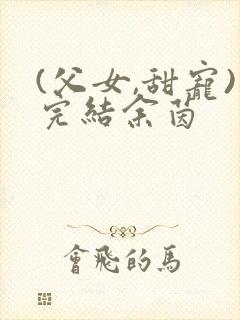 (父女,甜寵)
完結余茵
會飛的馬